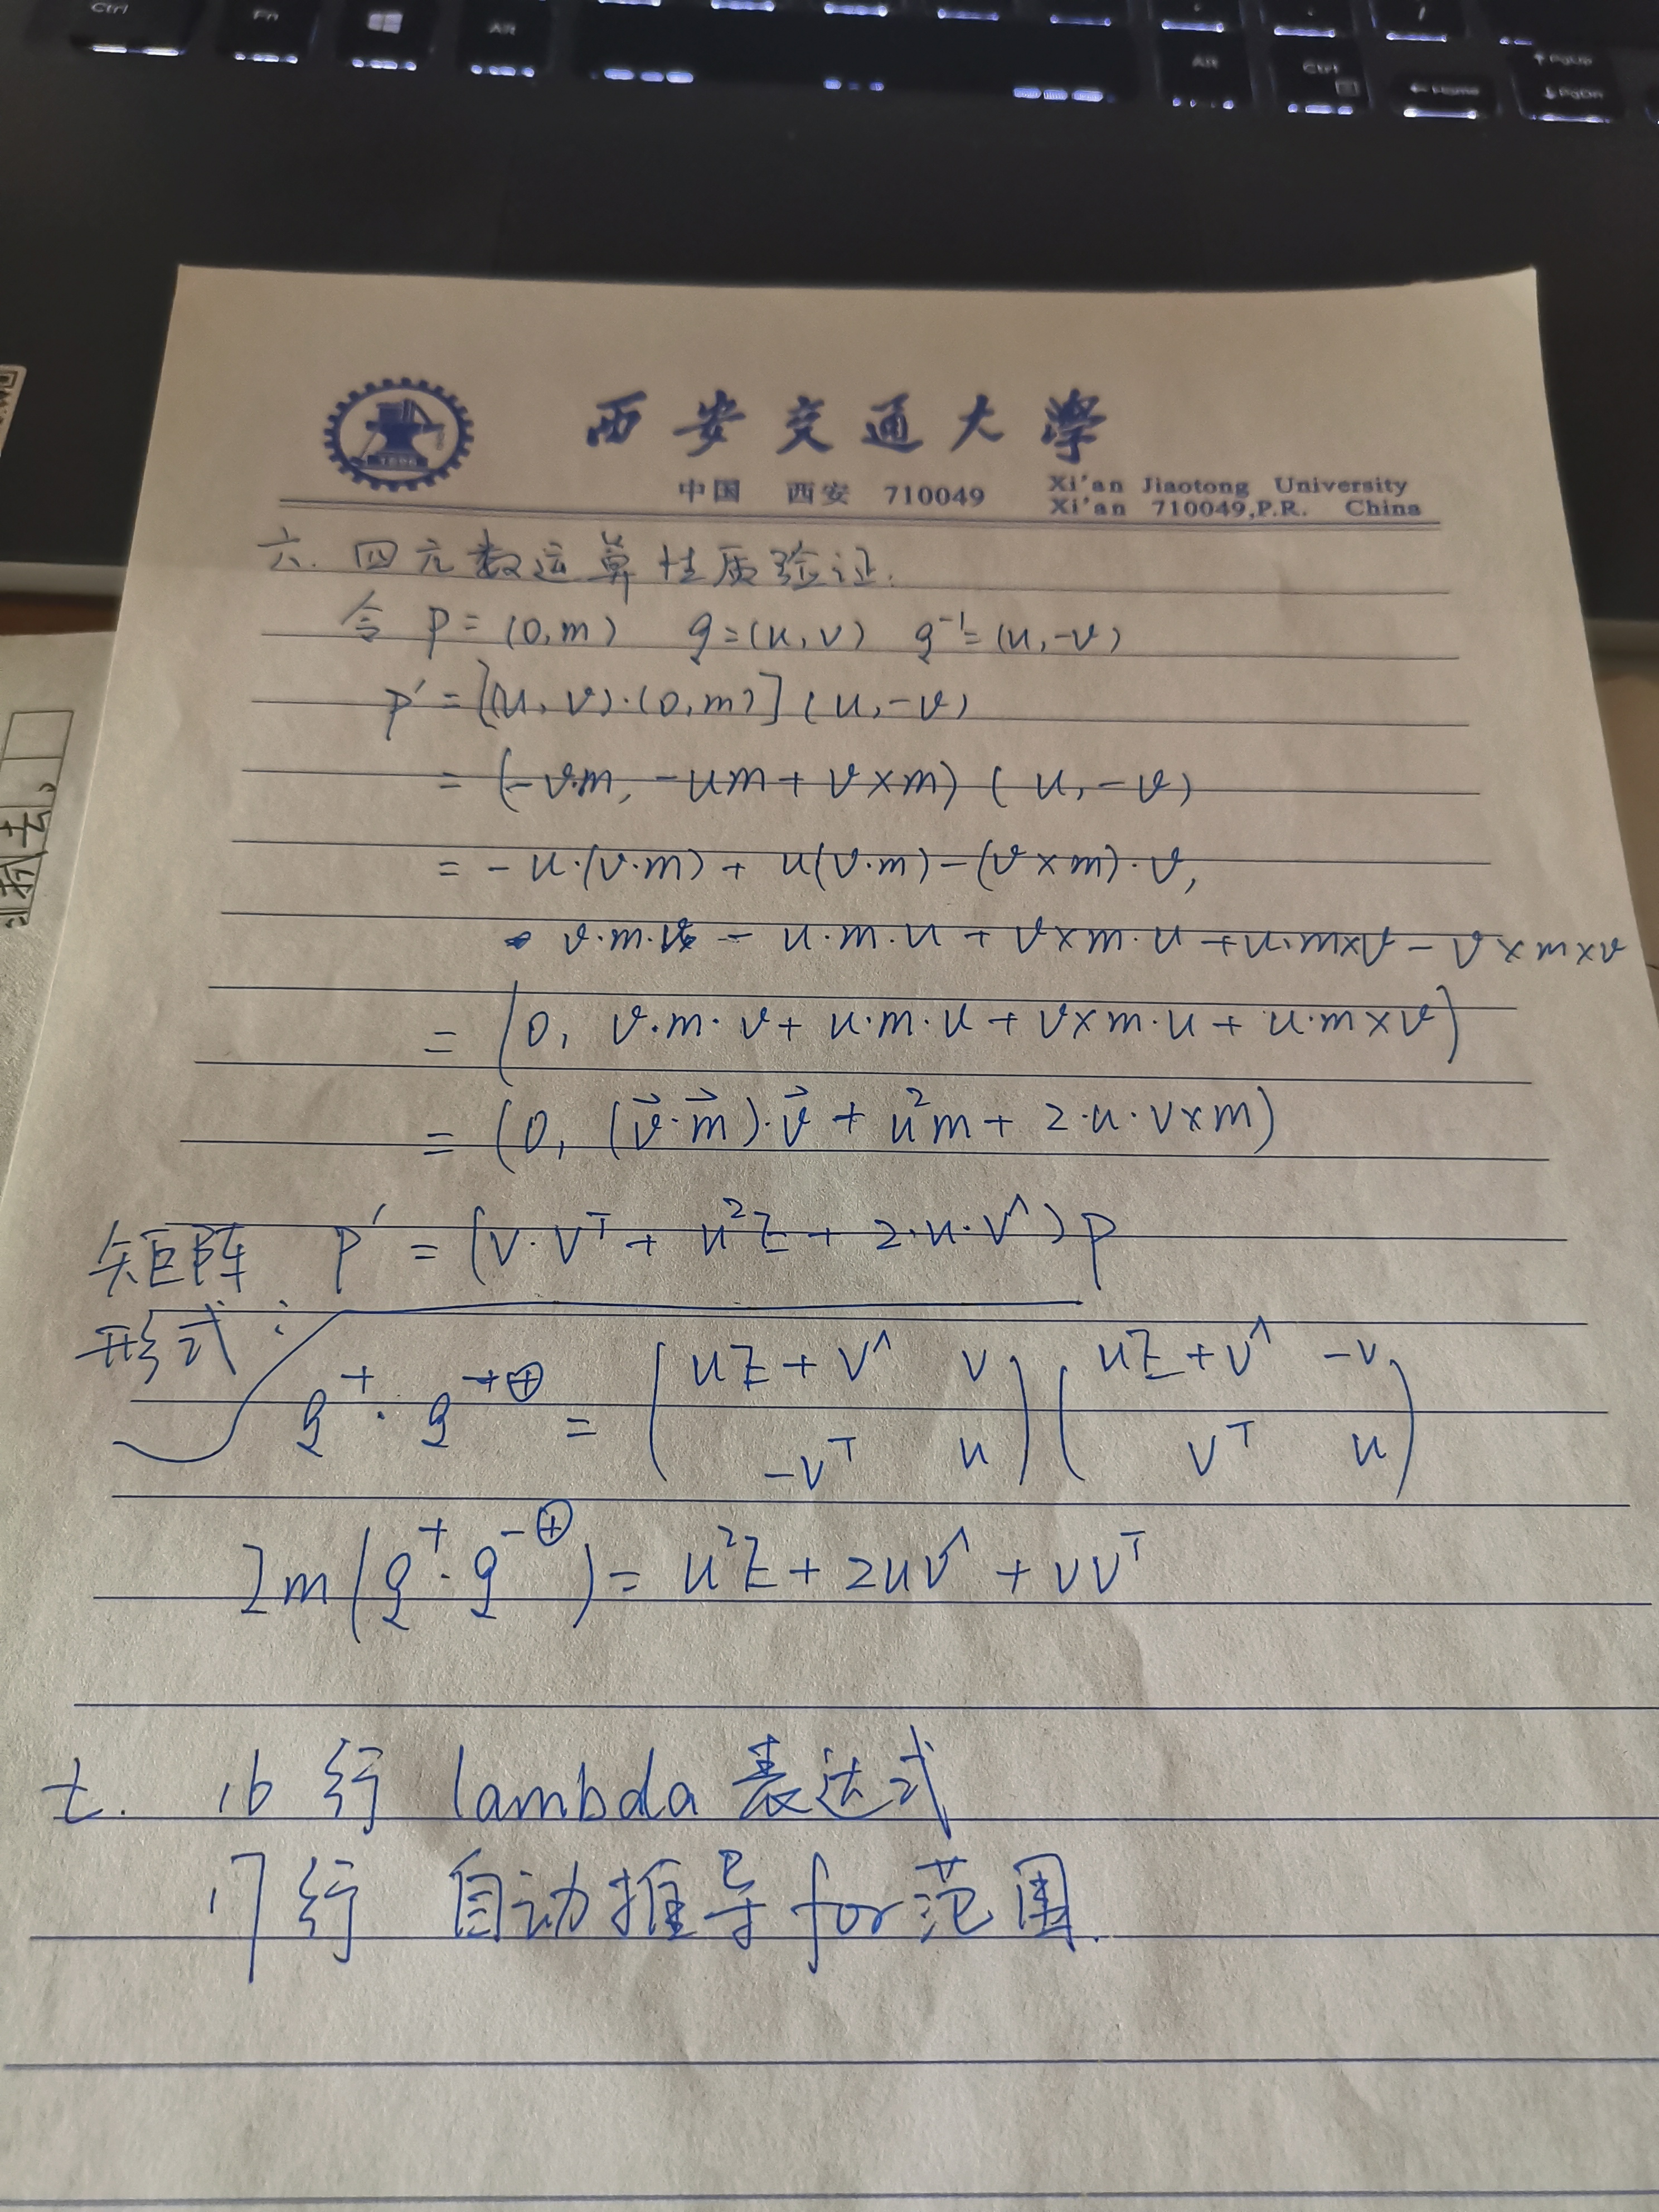 Ctrl Fn Alt Alt Ctrl ← Home ↑ PgUp ↓ PgDn
西安交通大学
中国 西安 710049
Xi'an Jiaotong University
Xi'an 710049,P.R. China
六. 四元数运算性质验证.
令 p = (0, m) q = (u, v) q⁻¹ = (u, -v)
p' = [(u, v)·(0, m)] (u, -v)
= (-v·m, -um + v×m) (u, -v)
= -u·(v·m) + u(v·m) - (v×m)·v,
v·m·v - u·m·u + v×m·u + u·m×v - v×m×v
= (0, v·m·v + u·m·u + v×m·u + u·m×v)
= (0, (v⃗·m⃗)·v⃗ + u²m + 2·u·v×m)
矩阵 p' = (v·vᵀ + u²E + 2·u·v^) p
形式:
q⁺·q⁻⁺⊕ = (uE + v^ v -vᵀ u) (uE + v^ -v vᵀ u)
Im(q⁺·q⁻⊕) = u²E + 2uv^ + vvᵀ
七. 16行 lambda 表达式
17行 自动推导for范围.